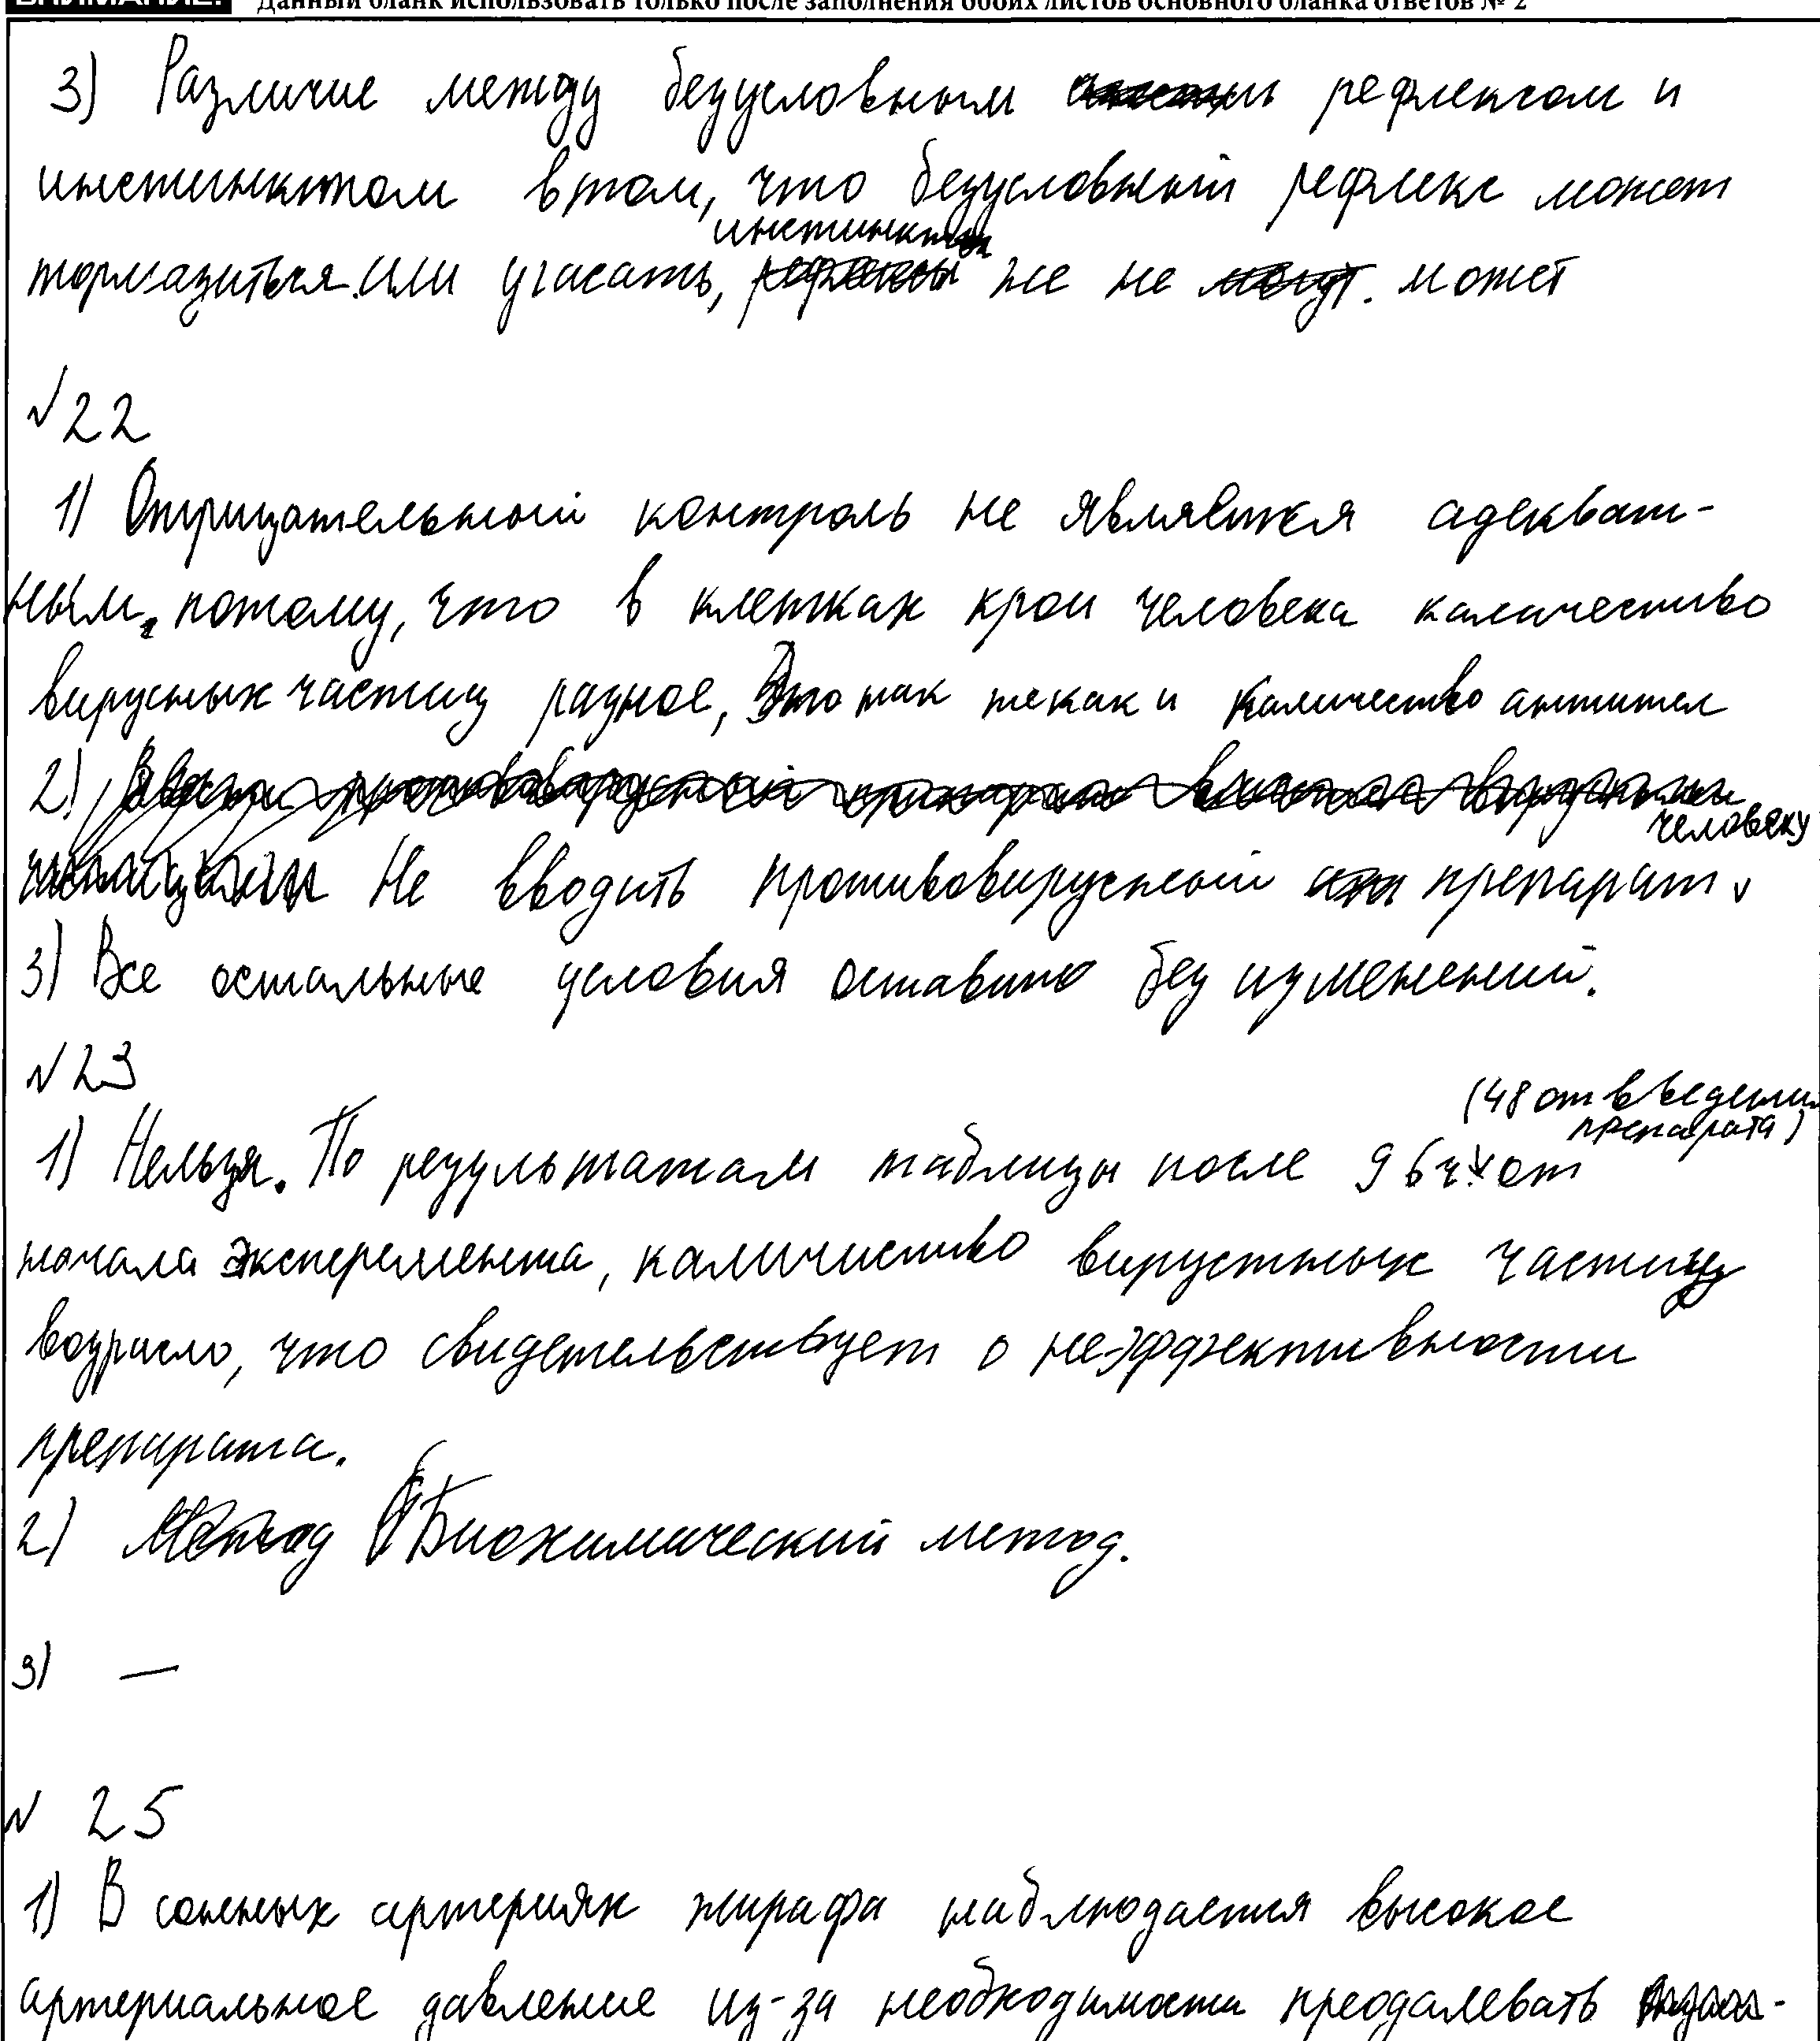 ВНИМАНИЕ! Данный бланк использовать только после заполнения обоих листов основного бланка ответов № 2
3) Различие между безусловным рефлексом и
инстинктом в том, что безусловный рефлекс может
инстинкт
тормазиться или угасать, рефлексы же не могут. может
№22
1) Отрицательный контроль не является адекват-
ным, потому, что в клетках крои человека каличество
вирусных частиц разное, Это так жекак и каличество антител
2)
человеку
Не вводить противовирусный препарат v
3) Все остальные условия оставить без изменений.
№23
(48 от введения
препарата)
1) Нельзя. По результатам таблицы после 96ч. v от
начала эксперемента, каличиство вирустных частиц
возрасло, что свидетельствует о не-эффективности
препарата.
2) Метод Биохимический метод.
3) —
№ 25
1) В сонных артериях жирафа наблюдается высокое
артериальное давление из-за необходимости преодалевать